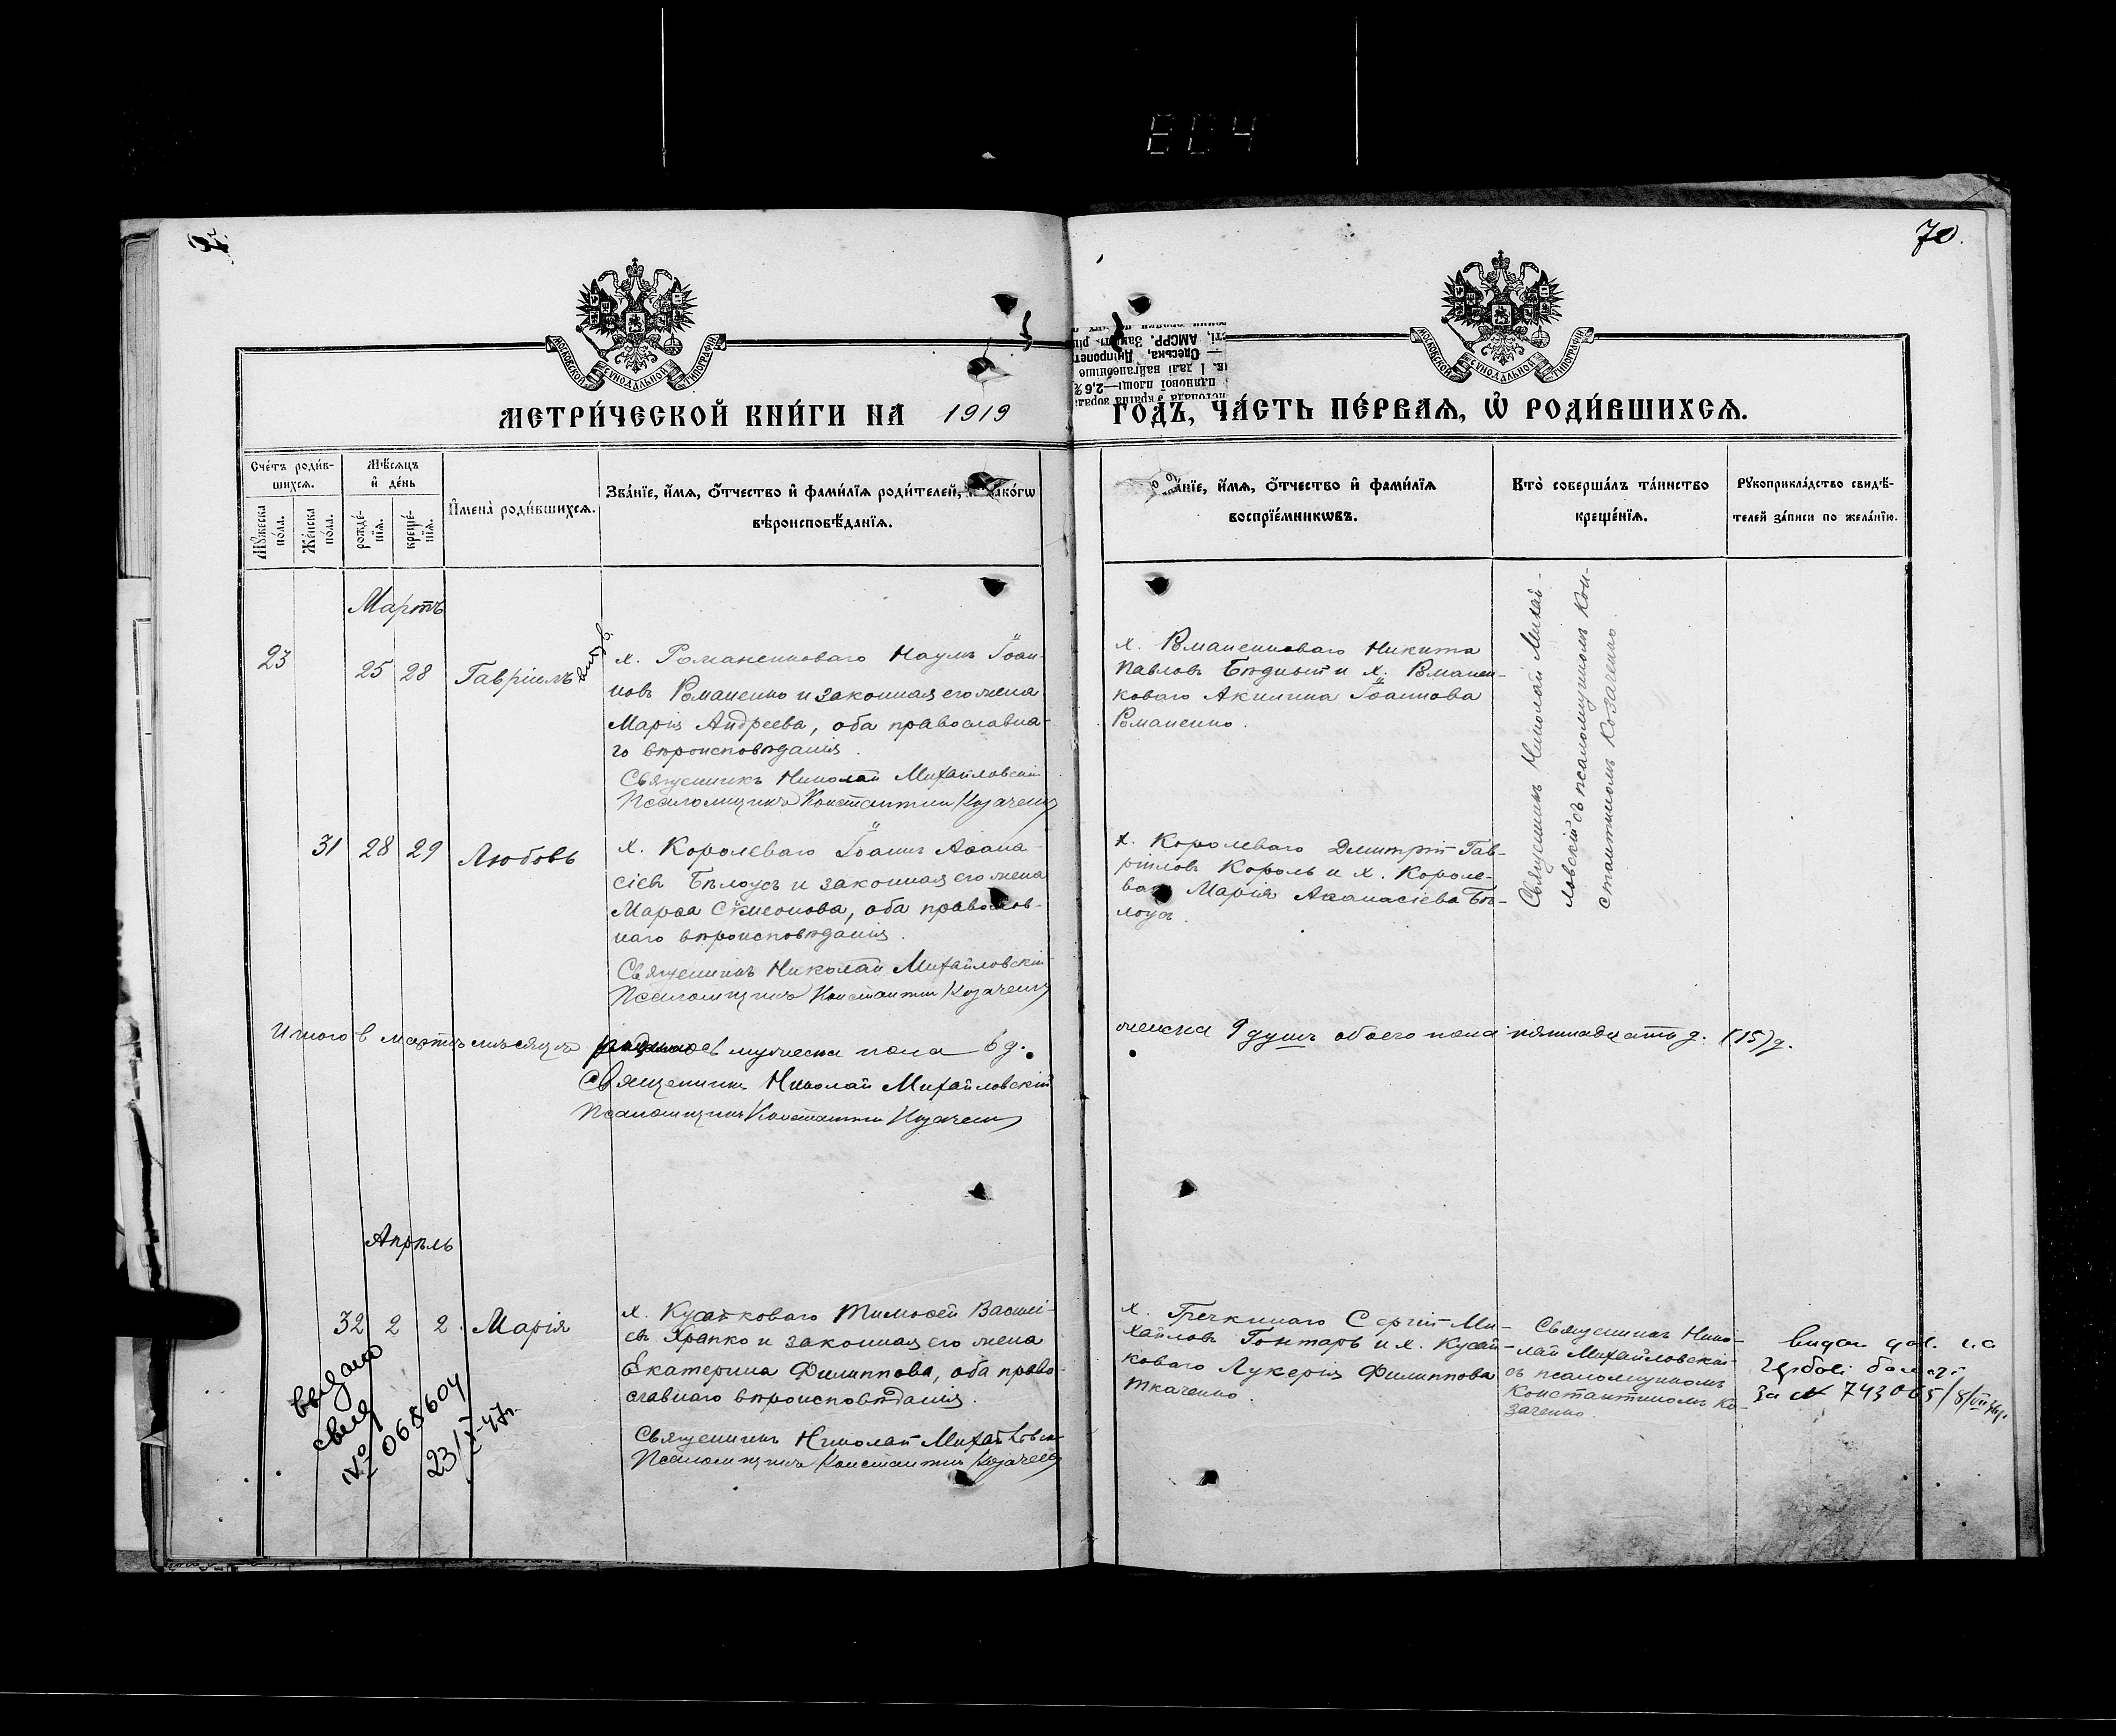 70.
МОСКОВСКОЙ СѴНОДАЛЬНОЙ ТИПОГРАФІИ
МОСКОВСКОЙ СѴНОДАЛЬНОЙ ТИПОГРАФІИ
МЕТРИ́ЧЕСКОЙ КНИ́ГИ НА 1919
ГОДЪ, ЧА́СТЬ ПЕ́РВАѦ, Ѡ҆ РОДИ́ВШИХСѦ.
Сче́тъ роди́в-
шихсѧ.
Мꙋ́жеска по́ла.
Же́нска по́ла.
Мѣ́сѧцъ
и҆ де́нь
рожде́-
нїѧ.
креще́-
нїѧ.
И҆мена̀ роди́вшихсѧ.
Зва́нїе, и҆́мѧ, ѻ҆́тчество и҆ фами́лїѧ роди́телей, и҆ како́гѡ
вѣроисповѣ́данїѧ.
и҆́мѧ, ѻ҆́тчество и҆ фами́лїѧ
воспрїе́мникѡвъ.
Кто̀ соверша́лъ та́инство
креще́нїѧ.
Рꙋкоприкла́дство свидѣ́-
телей за́писи по жела́нїю.
Мартъ
23
25
28
Гавріилъ
х. Романенковаго Наумъ Іоан-
новъ Романенко и законная его жена
Марія Андреева, оба православна-
го вѣроисповѣданія.
Священникъ Николай Михайловскій
Псаломщикъ Константин Козаченко
х. Романенковаго Никита
Павловъ Бѣдный и х. Романен-
коваго Акилина Іоаннова
Романенко.
Священникъ Николай Михай-
ловскій съ псаломщикомъ Кон-
стантиномъ Козаченко.
31
28
29
Любовь
х. Королеваго Іоаннъ Аѳана-
сіевъ Бѣлоусъ и законная его жена
Марѳа Сѵмеонова, оба православ-
наго вѣроисповѣданія.
Священникъ Николай Михайловскій
Псаломщикъ Константин Козаченко
х. Королеваго Димитрій Гав-
ріиловъ Король и х. Короле-
ваго Марія Аѳанасіева Бѣ-
лоусъ.
Итого в мартѣ мѣсяцѣ мужеска пола 6 д.
женска 9 душъ обоего пола пятнадцать д. (15) д.
Священникъ Николай Михайловскій
Псаломщикъ Константин Козаченко
Апрѣль
32
2
2.
Марія
х. Кусайковаго Тимоѳей Василі-
евъ Храпко и законная его жена
Екатерина Филиппова, оба право-
славнаго вѣроисповѣданія.
Священникъ Николай Михайловскій
Псаломщикъ Константин Козаченко
х. Гречкинаго Сергій Ми-
хайловъ Гонтаръ и х. Кусай-
коваго Лукерія Филиппова
Ткаченко.
Священникъ Нико-
лай Михайловскій
съ псаломщикомъ
Константиномъ Ко-
заченко.
за № 743065
выдано
свид
№ 068604